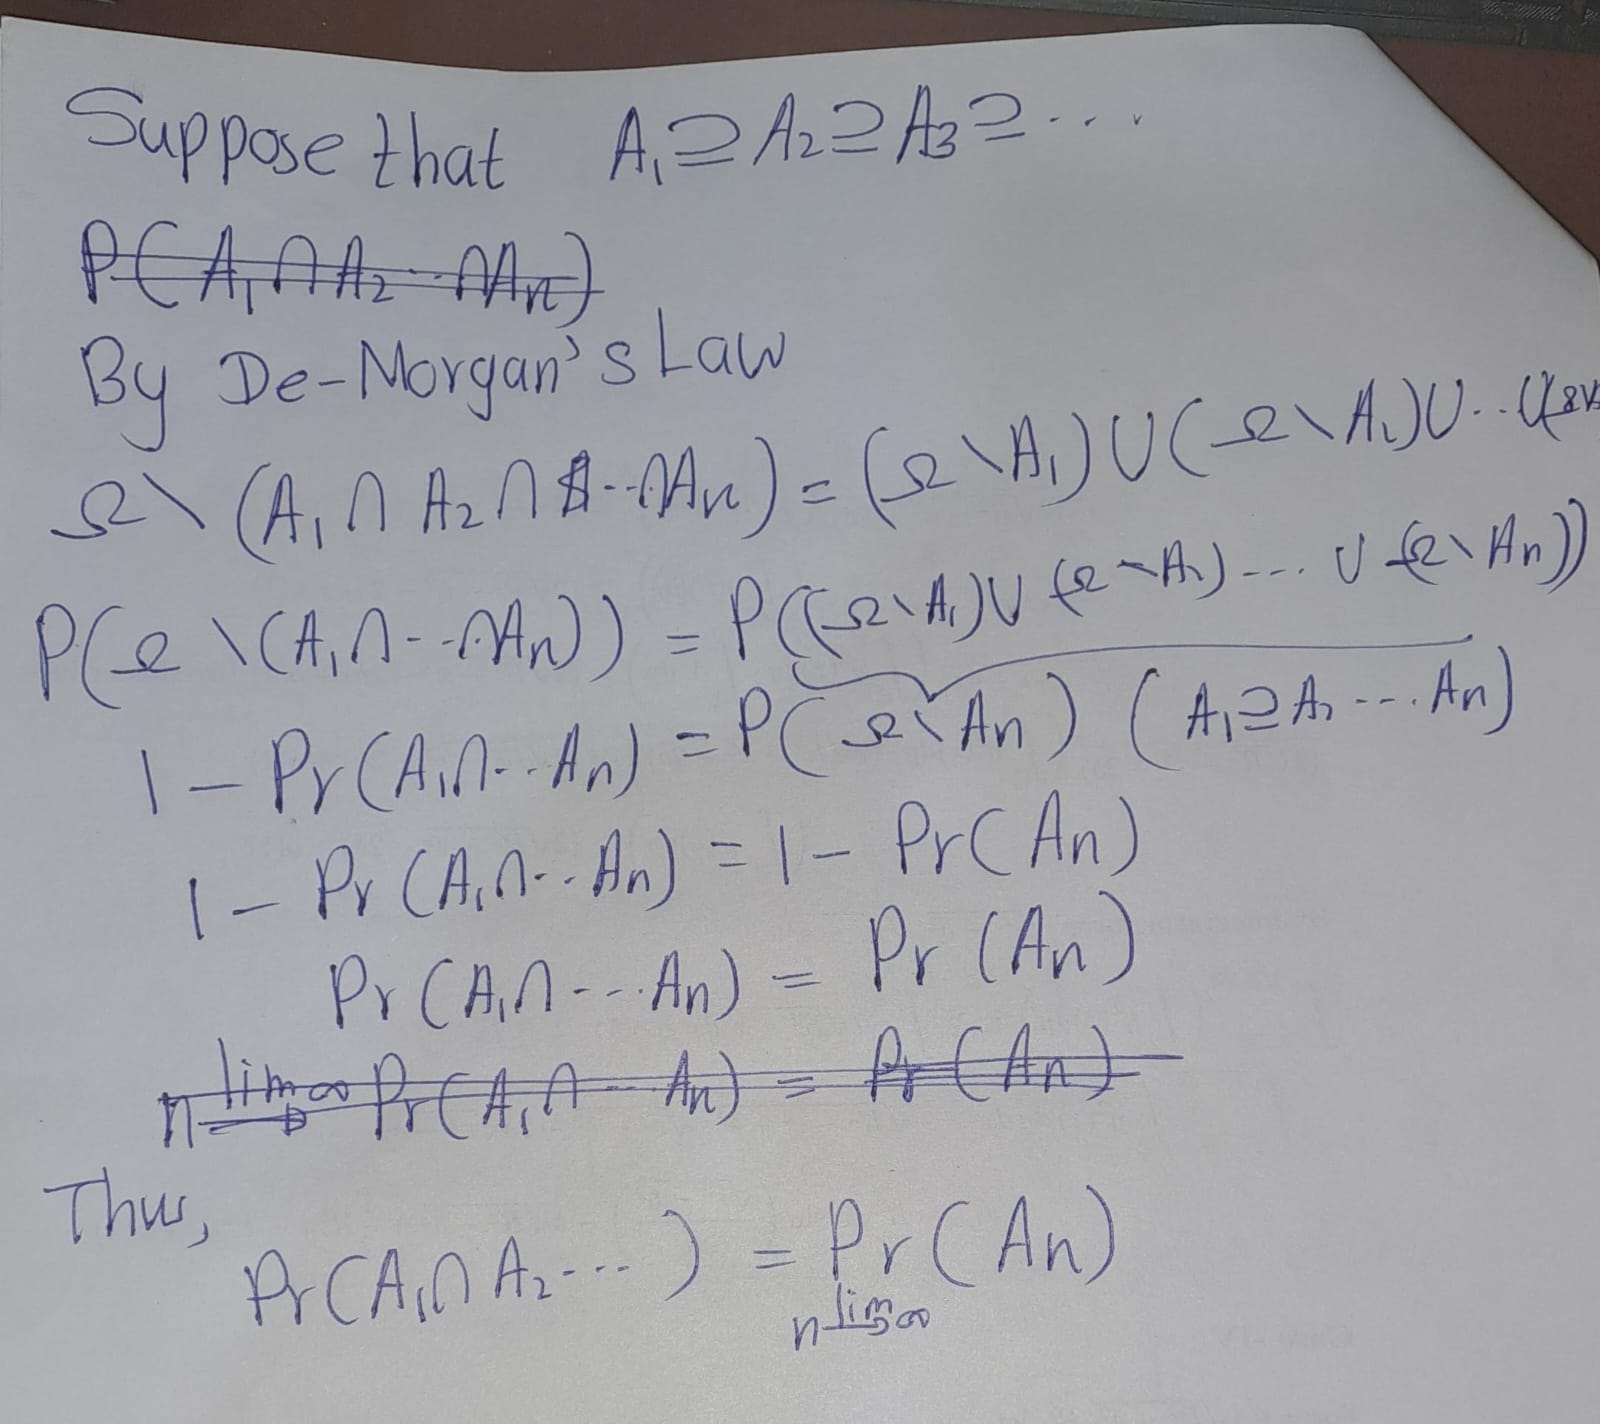 Suppose that A₁⊇A₂⊇A₃⊇...
P(A₁∩A₂...∩Aₙ)
By De-Morgan's Law
Ω\(A₁∩A₂∩...∩Aₙ)=(Ω\A₁)∪(Ω\A₂)∪...∪
P(Ω\(A₁∩...∩Aₙ)) = P((Ω\A₁)∪(Ω\A₂)...∪(Ω\Aₙ))
1-Pr(A₁∩...Aₙ) = P(Ω\Aₙ) (A₁⊇A₂...Aₙ)
1-Pr(A₁∩...Aₙ) = 1-Pr(Aₙ)
Pr(A₁∩...Aₙ) = Pr(Aₙ)
lim n→∞ Pr(A₁∩...Aₙ) = Pr(Aₙ)
Thus,
Pr(A₁∩A₂...) = Pr(Aₙ)
lim n→∞